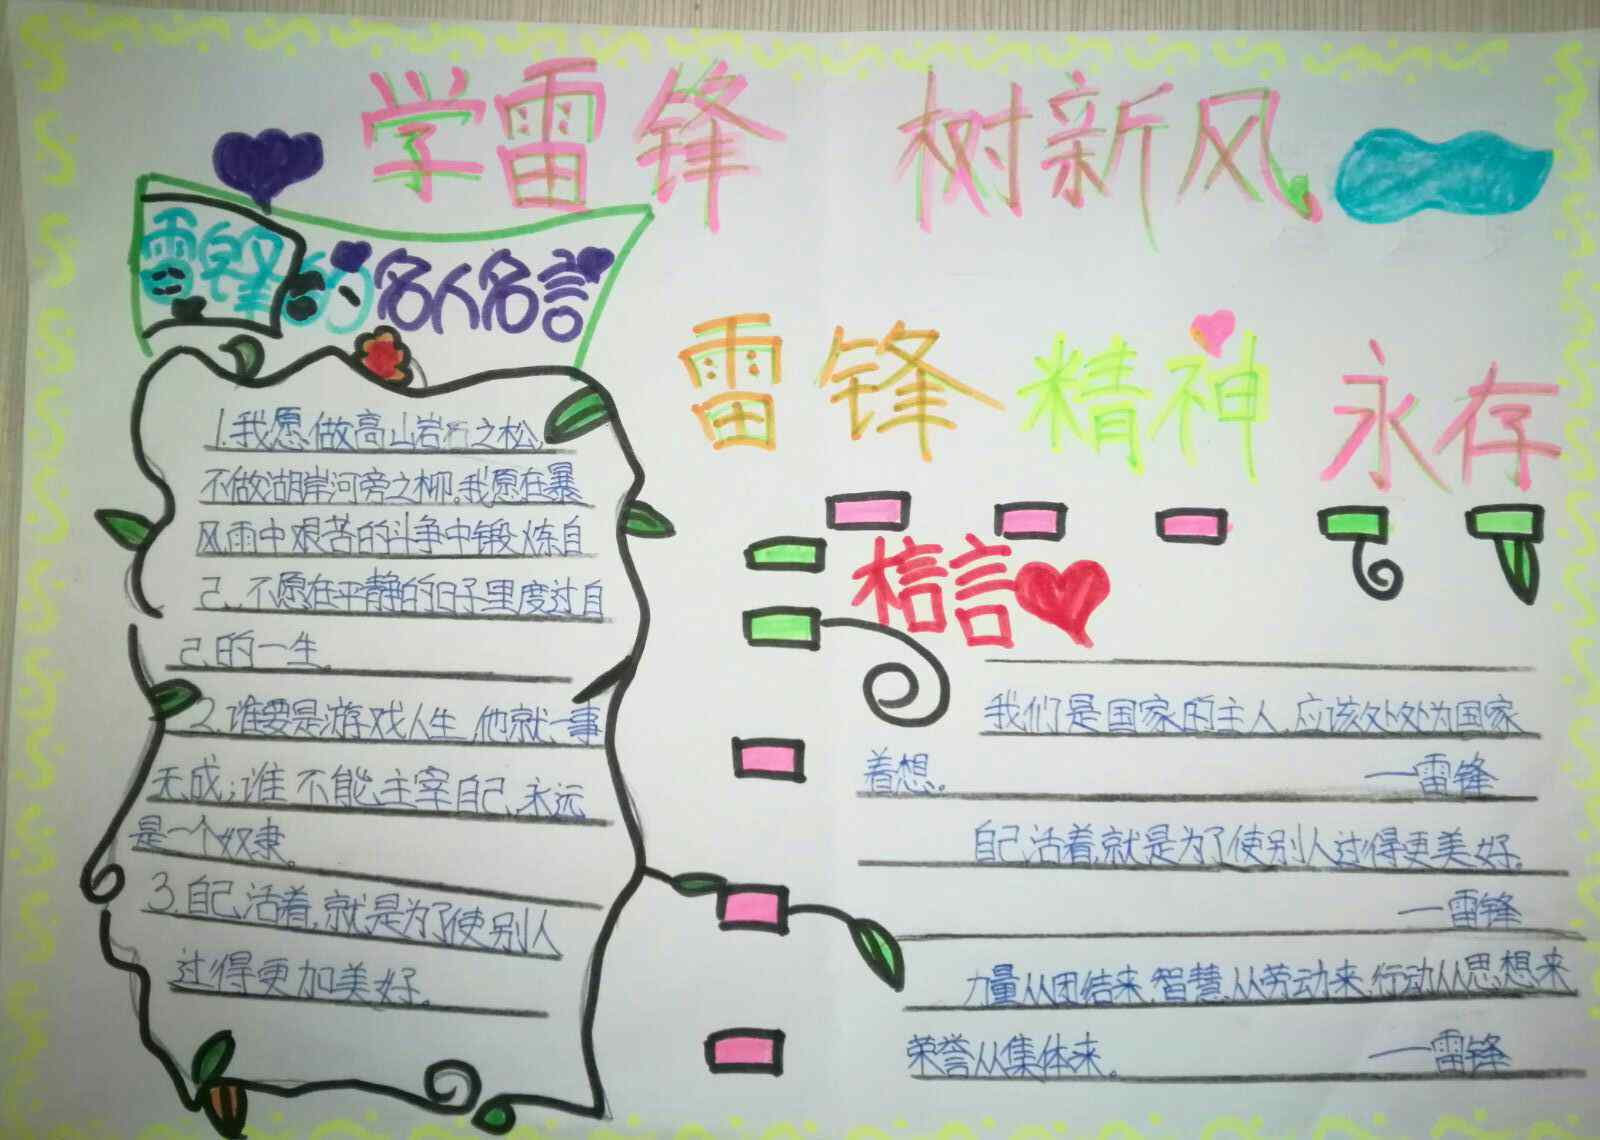 学雷锋 树新风
雷锋的名人名言
1.我愿做高山岩石之松,
不做湖岸河旁之柳。我愿在暴
风雨中艰苦的斗争中锻炼自
己,不愿在平静的日子里度过自
己的一生。
2.谁要是游戏人生,他就一事
无成;谁不能主宰自己,永远
是一个奴隶。
3.自己活着,就是为了使别人
过得更加美好。
雷锋精神永存
格言
我们是国家的主人,应该处处为国家
着想。 —雷锋
自己活着,就是为了使别人过得更美好。
—雷锋
力量从团结来,智慧从劳动来,行动从思想来
荣誉从集体来。 —雷锋